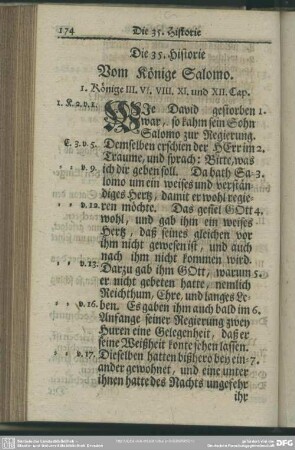 174 Die 35. Historie
Die 35. Historie
Vom Könige Salomo.
1. Könige III. VI. VIII. XI. und XII. Cap.
1. K. 2. v. 1. WIe David gestorben 1.
war, so kahm sein Sohn
Salomo zur Regierung.
C. 3. v. 5. Demselben erschien der HErr im 2.
Traume, und sprach: Bitte, was
= = v. 9. ich dir geben soll. Da bath Sa- 3.
lomo um ein weises und verstän-
diges Hertz, damit er wohl regie-
= = v. 10. ren möchte. Das gefiel GOtt 4.
wohl, und gab ihm ein weises
Hertz, daß seines gleichen vor
ihm nicht gewesen ist, und auch
nach ihm nicht kommen wird.
= = v. 13. Darzu gab ihm GOtt, warum 5.
er nicht gebeten hatte, nemlich
Reichthum, Ehre, und langes Le-
= = v. 16. ben. Es gaben ihm auch bald im 6.
Anfange seiner Regierung zwey
Huren eine Gelegenheit, daß er
seine Weißheit konte sehen lassen.
= = v. 17. Dieselben hatten bißhero bey ein- 7.
ander gewohnet, und eine unter
ihnen hatte des Nachts ungefehr
ihr